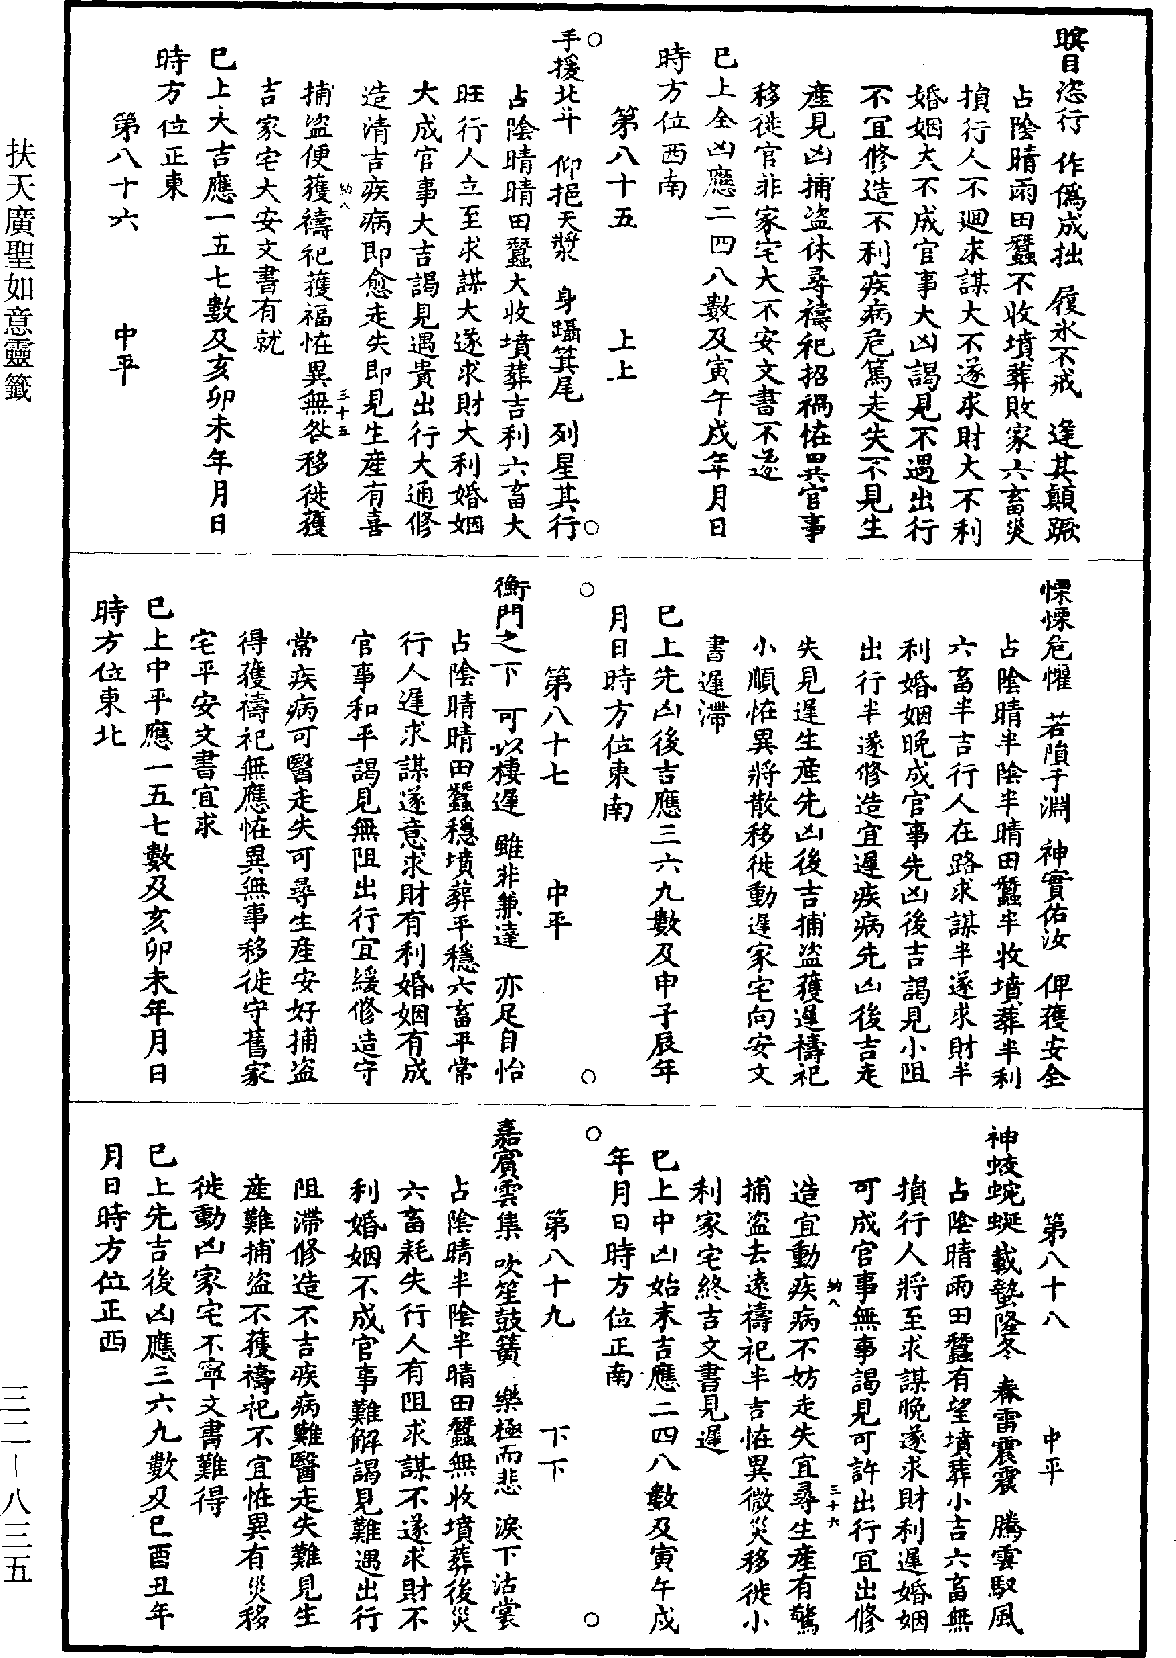 瞑目恣行　作僞成拙　履氷不戒　逢其顛蹶
占陰晴雨田蠶不收墳葬敗家六畜災
損行人不迴求謀大不遂求財大不利
婚姻大不成官事大凶謁見不遇出行
不宜修造不利疾病危篤走失不見生
產見凶捕盜休尋禱祀招禍怪異官事
移徙官非家宅大不安文書不遂
巳上全凶應二四八數及寅午戌年月日
時方位西南
第八十五　上上
○手援北斗　仰挹天漿　身躡箕尾　列星其行○
占陰晴晴田蠶大收墳葬吉利六畜大
旺行人立至求謀大遂求財大利婚姻
大成官事大吉謁見遇貴出行大通修
造清吉疾病即愈走失即見生產有喜
納八　三十五
捕盜便獲禱祀獲福怪異無咎移徙獲
吉家宅大安文書有就
巳上大吉應一五七數及亥卯未年月日
時方位正東
第八十六　中平
慄慄危懼　若隕于淵　神實佑汝　俾獲安全
占陰晴半陰半晴田蠶半收墳葬半利
六畜半吉行人在路求謀半遂求財半
利婚姻晚成官事先凶後吉謁見小阻
出行半遂修造宜遲疾病先凶後吉走
失見遲生產先凶後吉捕盜獲遲禱祀
小順怪異將散移徙動遲家宅向安文
書遲滯
巳上先凶後吉應三六九數及申子辰年
月日時方位東南
○　○
第八十七　中平
衡門之下　可以棲遲　雖非兼達　亦足自怡
占陰晴晴田蠶穩墳葬平穩六畜平常
行人遲求謀遂意求財有利婚姻有成
官事和平謁見無阻出行宜緩修造守
常疾病可醫走失可尋生產安好捕盜
得獲禱祀無應怪異無事移徙守舊家
宅平安文書宜求
巳上中平應一五七數及亥卯未年月日
時方位東北
第八十八　中平
神蛟蜿蜒　載蟄隆冬　春雷震震　騰雲馭風
占陰晴雨田蠶有望墳葬小吉六畜無
損行人將至求謀晚遂求財利遲婚姻
可成官事無事謁見可許出行宜出修
納八　三十六
造宜動疾病不妨走失宜尋生產有驚
捕盜去遠禱祀半吉怪異微災移徙小
利家宅終吉文書見遲
巳上中凶始末吉應二四八數及寅午戌
年月日時方位正南
○　○
第八十九　下下
嘉賓雲集　吹笙鼓簧　樂極而悲　淚下沾裳
占陰晴半陰半晴田蠶無收墳葬後災
六畜耗失行人有阻求謀不遂求財不
利婚姻不成官事難解謁見難遇出行
阻滯修造不吉疾病難醫走失難見生
產難捕盜不獲禱祀不宜怪異有災移
徙動凶家宅不寧文書難得
巳上先吉後凶應三六九數及巳酉丑年
月日時方位正西
扶天廣聖如意靈籤
三二—八三五